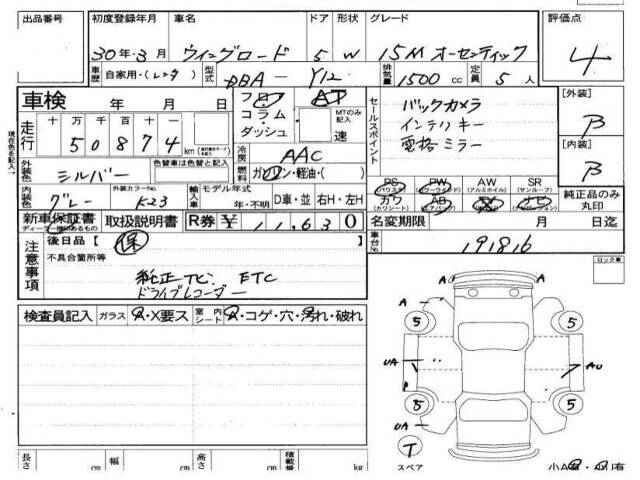 出品番号 初度登録年月 車名 ドア 形状 グレード 評価点
30年・3月 ウイングロード 5 W 15M オーセンティック 4
車歴 自家用・(レンタ) 型式 DBA－Y12 排気量 1500cc 定員 5人
車検 年 月 日 フロア AT
コラム・ダッシュ MTのみ記入 速
現在あるを記入
走行 十万 万 千 百 十 一
50874km
冷房 AAC
燃料 ガソリン・軽油・( )
セールスポイント バックカメラ
インテリキー
電格ミラー
[外装] B
[内装] B
外装色 シルバー 色替車は色替と記入
内装色 グレー 外装カラーNo. K23 輸入車 モデル年式 年・不明 D車・並 右H・左H
PS (パワステ) PW (パワーウインド) AW (アルミホイル) SR (サンルーフ)
カワ (カワシート) AB (エアバック) TV ナビ (ナビゲーション)
純正品のみ丸印
新車保証書 取扱説明書 R券 ¥11,630
名変期限 月 日迄
車台No. 191816
注意事項 後日品【 保
不具合箇所等
純正ナビ ETC
ドライブレコーダー
ロック車
検査員記入 ガラス A・X要ス 室内シート A・コゲ・穴・汚れ・破れ
A A
A 5 5
UA AU
5 5
UA
T スペア
長さ cm 幅 cm 高さ cm 積載量 kg
小A